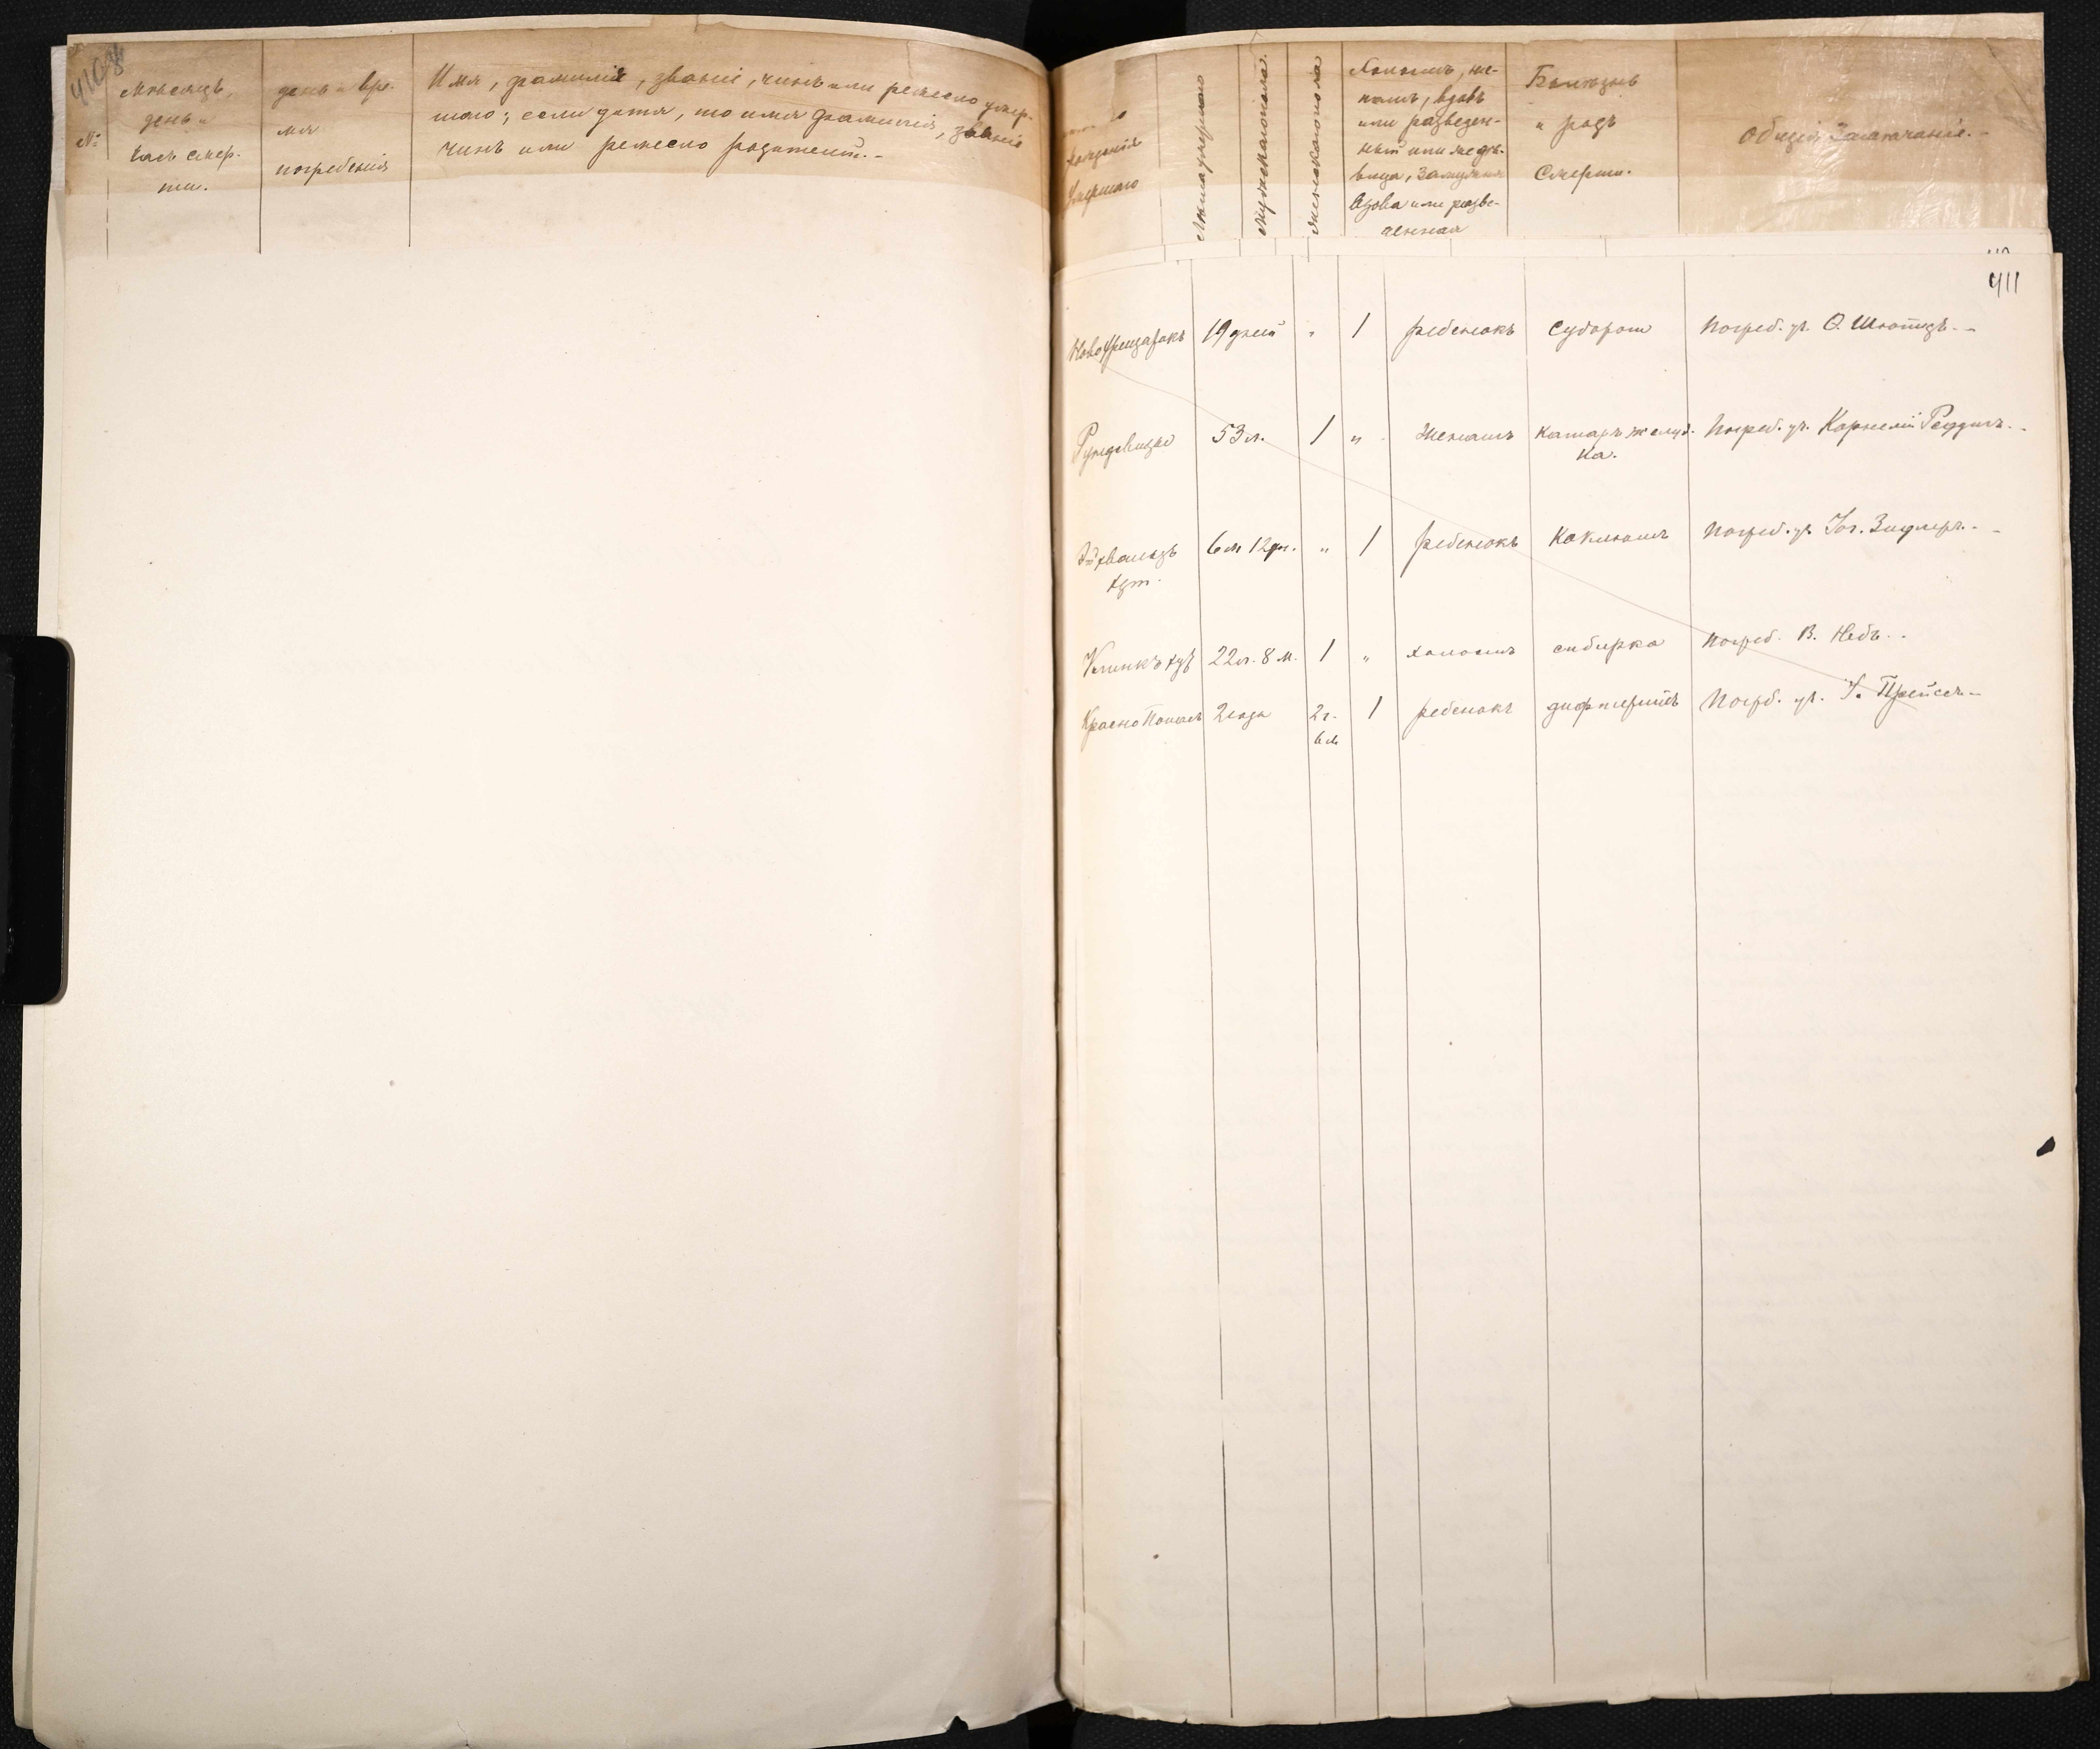 410об
№
Мѣсяцъ,
день и
часъ смер-
ти.
день и вре-
мя
погребенія
Имя, фамилія, званіе, чинъ или ремесло умер-
шаго; если дитя, то имя фамилія, званіе
чинъ или ремесло родителей.-
рожденія
Умершаго
Лѣта умершаго
Мужскаго пола.
Женскаго пола
Холостъ, же-
натъ, вдовъ
или разведен-
ный или же дѣ-
вица, замужняя
вдова или разве-
денная
Болѣзнь
и родъ
Смерти.
Общія Замѣчанія.-
411
Ново 19 дней " 1 ребенокъ Судороги Погреб. уч. О. Шютцъ.-
Рундевизе 53 л. 1 " Женатъ Катаръ желуд- Погреб. уч. Корнелій
ка.
6 м 12 дн. " 1 ребенокъ Коклюшъ Погреб. уч. Іог. Зиглеръ.-
хут.
Клинкъ хут 22 л. 8 м. 1 " холостъ сибирка Погреб. В. Небъ.
Красно 2 года 2 г. 1 ребенокъ дифтеритъ Погреб. уч. Прейсъ.-
6 м